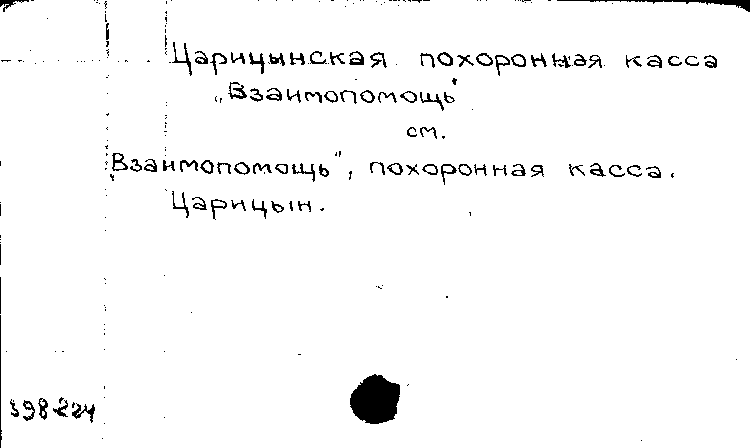 Царицынская похоронная касса
„Взаимопомощь"
см.
„Взаимопомощь", похоронная касса.
Царицын.
398-224